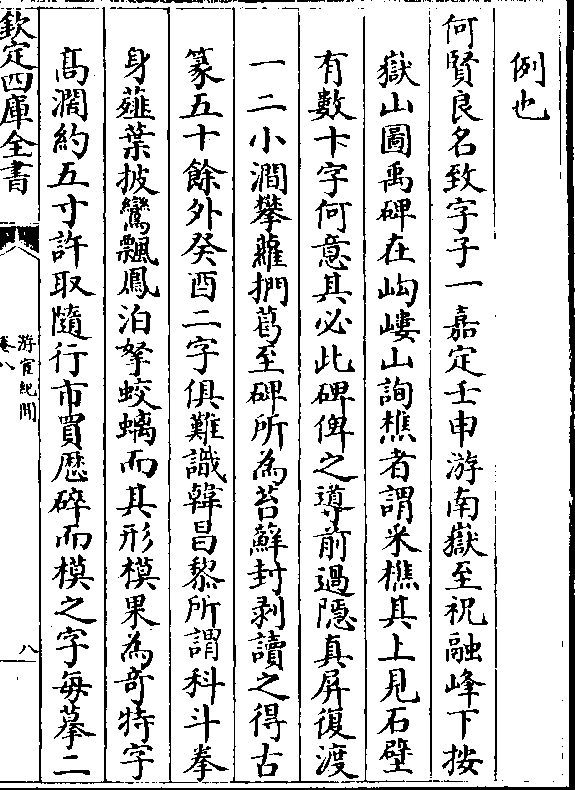 例也
何賢良名致字子一嘉定壬申游南嶽至祝融峰下按
嶽山圖禹碑在岣嶁山詢樵者謂采樵其上見石壁
有數卞字何意其必此碑俾之導前過隱真屏復渡
一二小澗攀蘿捫葛至碑所為苔蘚封剥讀之得古
篆五十餘外癸酉二字俱難識韓昌黎所謂科斗拳
身薤葉披鸞飄鳳泊拏蛟螭而其形模果為竒特字
髙濶約五寸許取隨行市買歴碎而模之字每摹二
欽定四庫全書
游宦紀聞
卷八
八